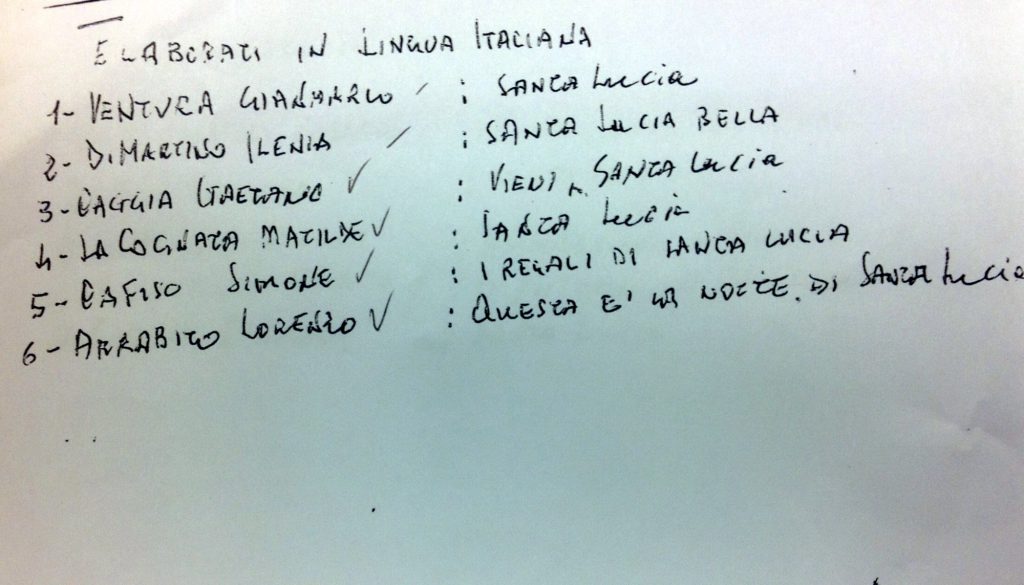 ELABORATI IN LINGUA ITALIANA
1- VENTURA GIANMARCO : SANTA LUCIA
2- DIMARTINO ILENIA : SANTA LUCIA BELLA
3- CAGGIA GAETANO ✓ : VIENI SANTA LUCIA
4- LA COGNATA MATILDE ✓ : SANTA LUCIA
5- CAFISO SIMONE ✓ : I REGALI DI SANTA LUCIA
6- ARRABITO LORENZO ✓ : QUESTA E' LA NOTTE DI SANTA LUCIA